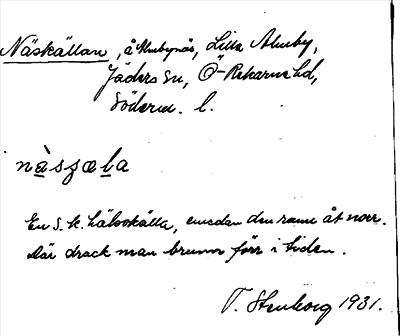 Näskällan, å Almbynäs, Lilla Almby,
Jäders sn, Ö-Rekarne hd,
Söderm. l.
nàsʒæla
En s.k. hälsokälla, emedan den rann åt norr.
Där drack man brunn förr i tiden.
T. Stenborg 1931.